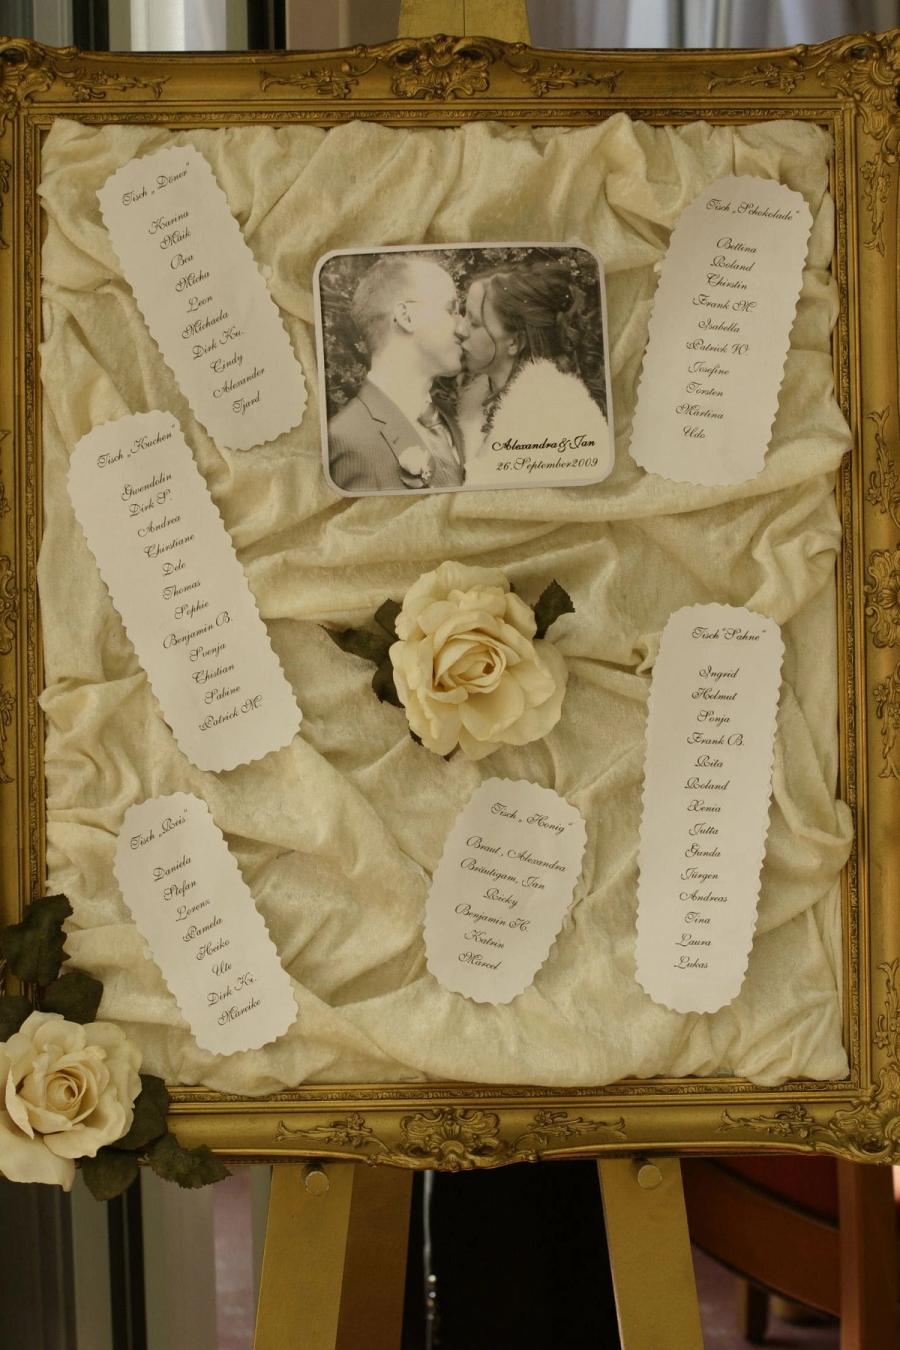 Tisch „Döner"
Karina
Maik
Bea
Micha
Leon
Michaela
Dirk Ku.
Cindy
Alexander
Tjard
Alexandra & Jan
26. September 2009
Tisch „Schokolade"
Bettina
Roland
Chirstin
Frank M.
Isabella
Patrick W.
Josefine
Torsten
Martina
Udo
Tisch „Kuchen"
Gwendolin
Dirk S.
Andrea
Chirstiane
Dele
Thomas
Sophie
Benjamin B.
Svenja
Chistian
Sabine
Patrick M.
Tisch "Sahne"
Ingrid
Helmut
Sonja
Frank B.
Rita
Roland
Xenia
Jutta
Gunda
Jürgen
Andreas
Tina
Laura
Lukas
Tisch „Reis"
Daniela
Stefan
Lorenz
Pamela
Heiko
Ute
Dirk Ki.
Mareike
Tisch „Honig"
Braut, Alexandra
Bräutigam, Jan
Ricky
Benjamin H.
Katrin
Marcel